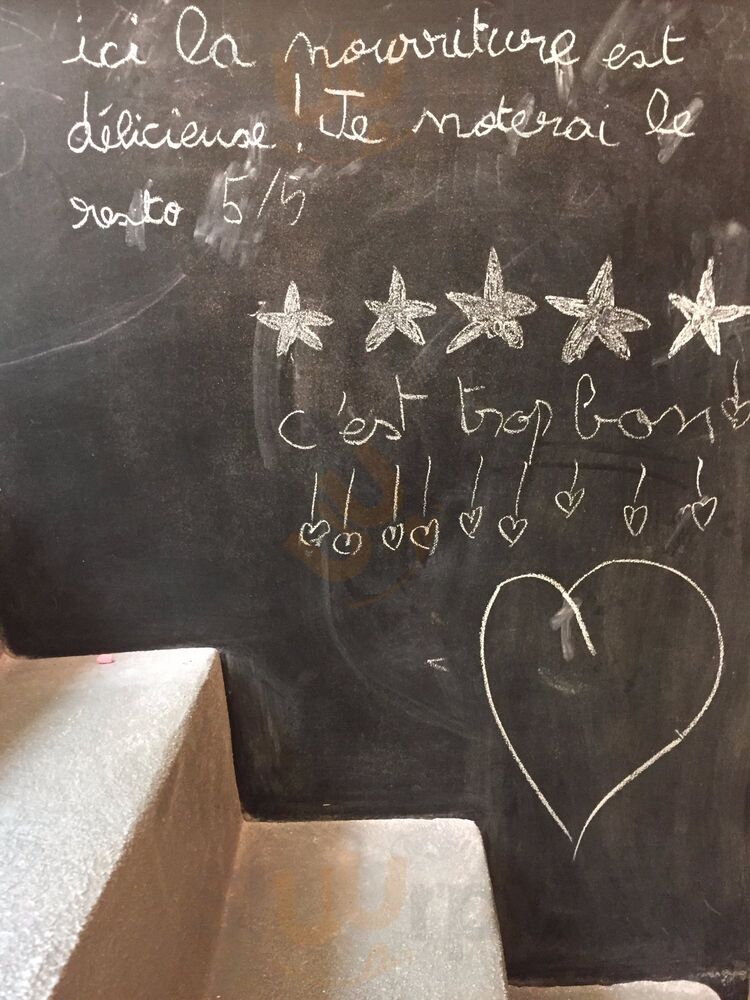 ici la nourriture est
délicieuse ! Je noterai le
resto 5/5
c'est trop bon